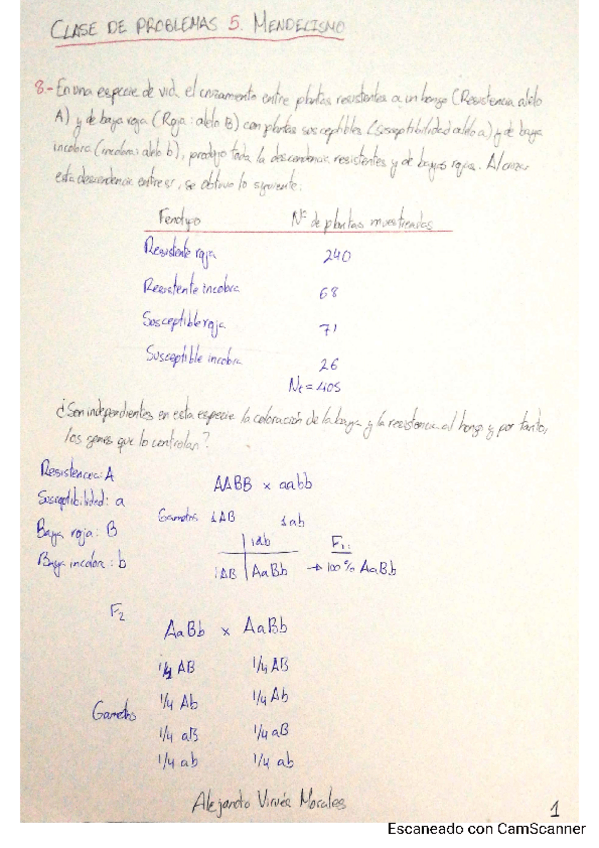 CLASE DE PROBLEMAS 5. MENDELISMO
8.- En una especie de vid, el cruzamiento entre plantas resistentes a un hongo (Resistencia alelo
A) y de baya roja (Roja: alelo B) con plantas susceptibles (susceptibilidad alelo a) y de baya
incolora (incolora: alelo b), produjo toda la descendencia resistentes y de bayas rojas. Al cruzar
esta descendencia entre sí, se obtuvo lo siguiente:
Fenotipo Nº de plantas muestreadas
Resistente roja 240
Resistente incolora 68
Susceptible roja 71
Susceptible incolora 26
Nt = 405
¿Son independientes en esta especie la coloración de la baya y la resistencia al hongo y por tanto,
los genes que lo controlan?
Resistencia: A
Susceptibilidad: a
Baya roja: B
Baya incolora: b
AABB x aabb
Gametos 1AB 1ab
1ab F1:
1AB AaBb → 100% AaBb
F2
AaBb x AaBb
1/4 AB 1/4 AB
1/4 Ab 1/4 Ab
Gametos
1/4 aB 1/4 aB
1/4 ab 1/4 ab
Alejandro Virués Morales
1
Escaneado con CamScanner